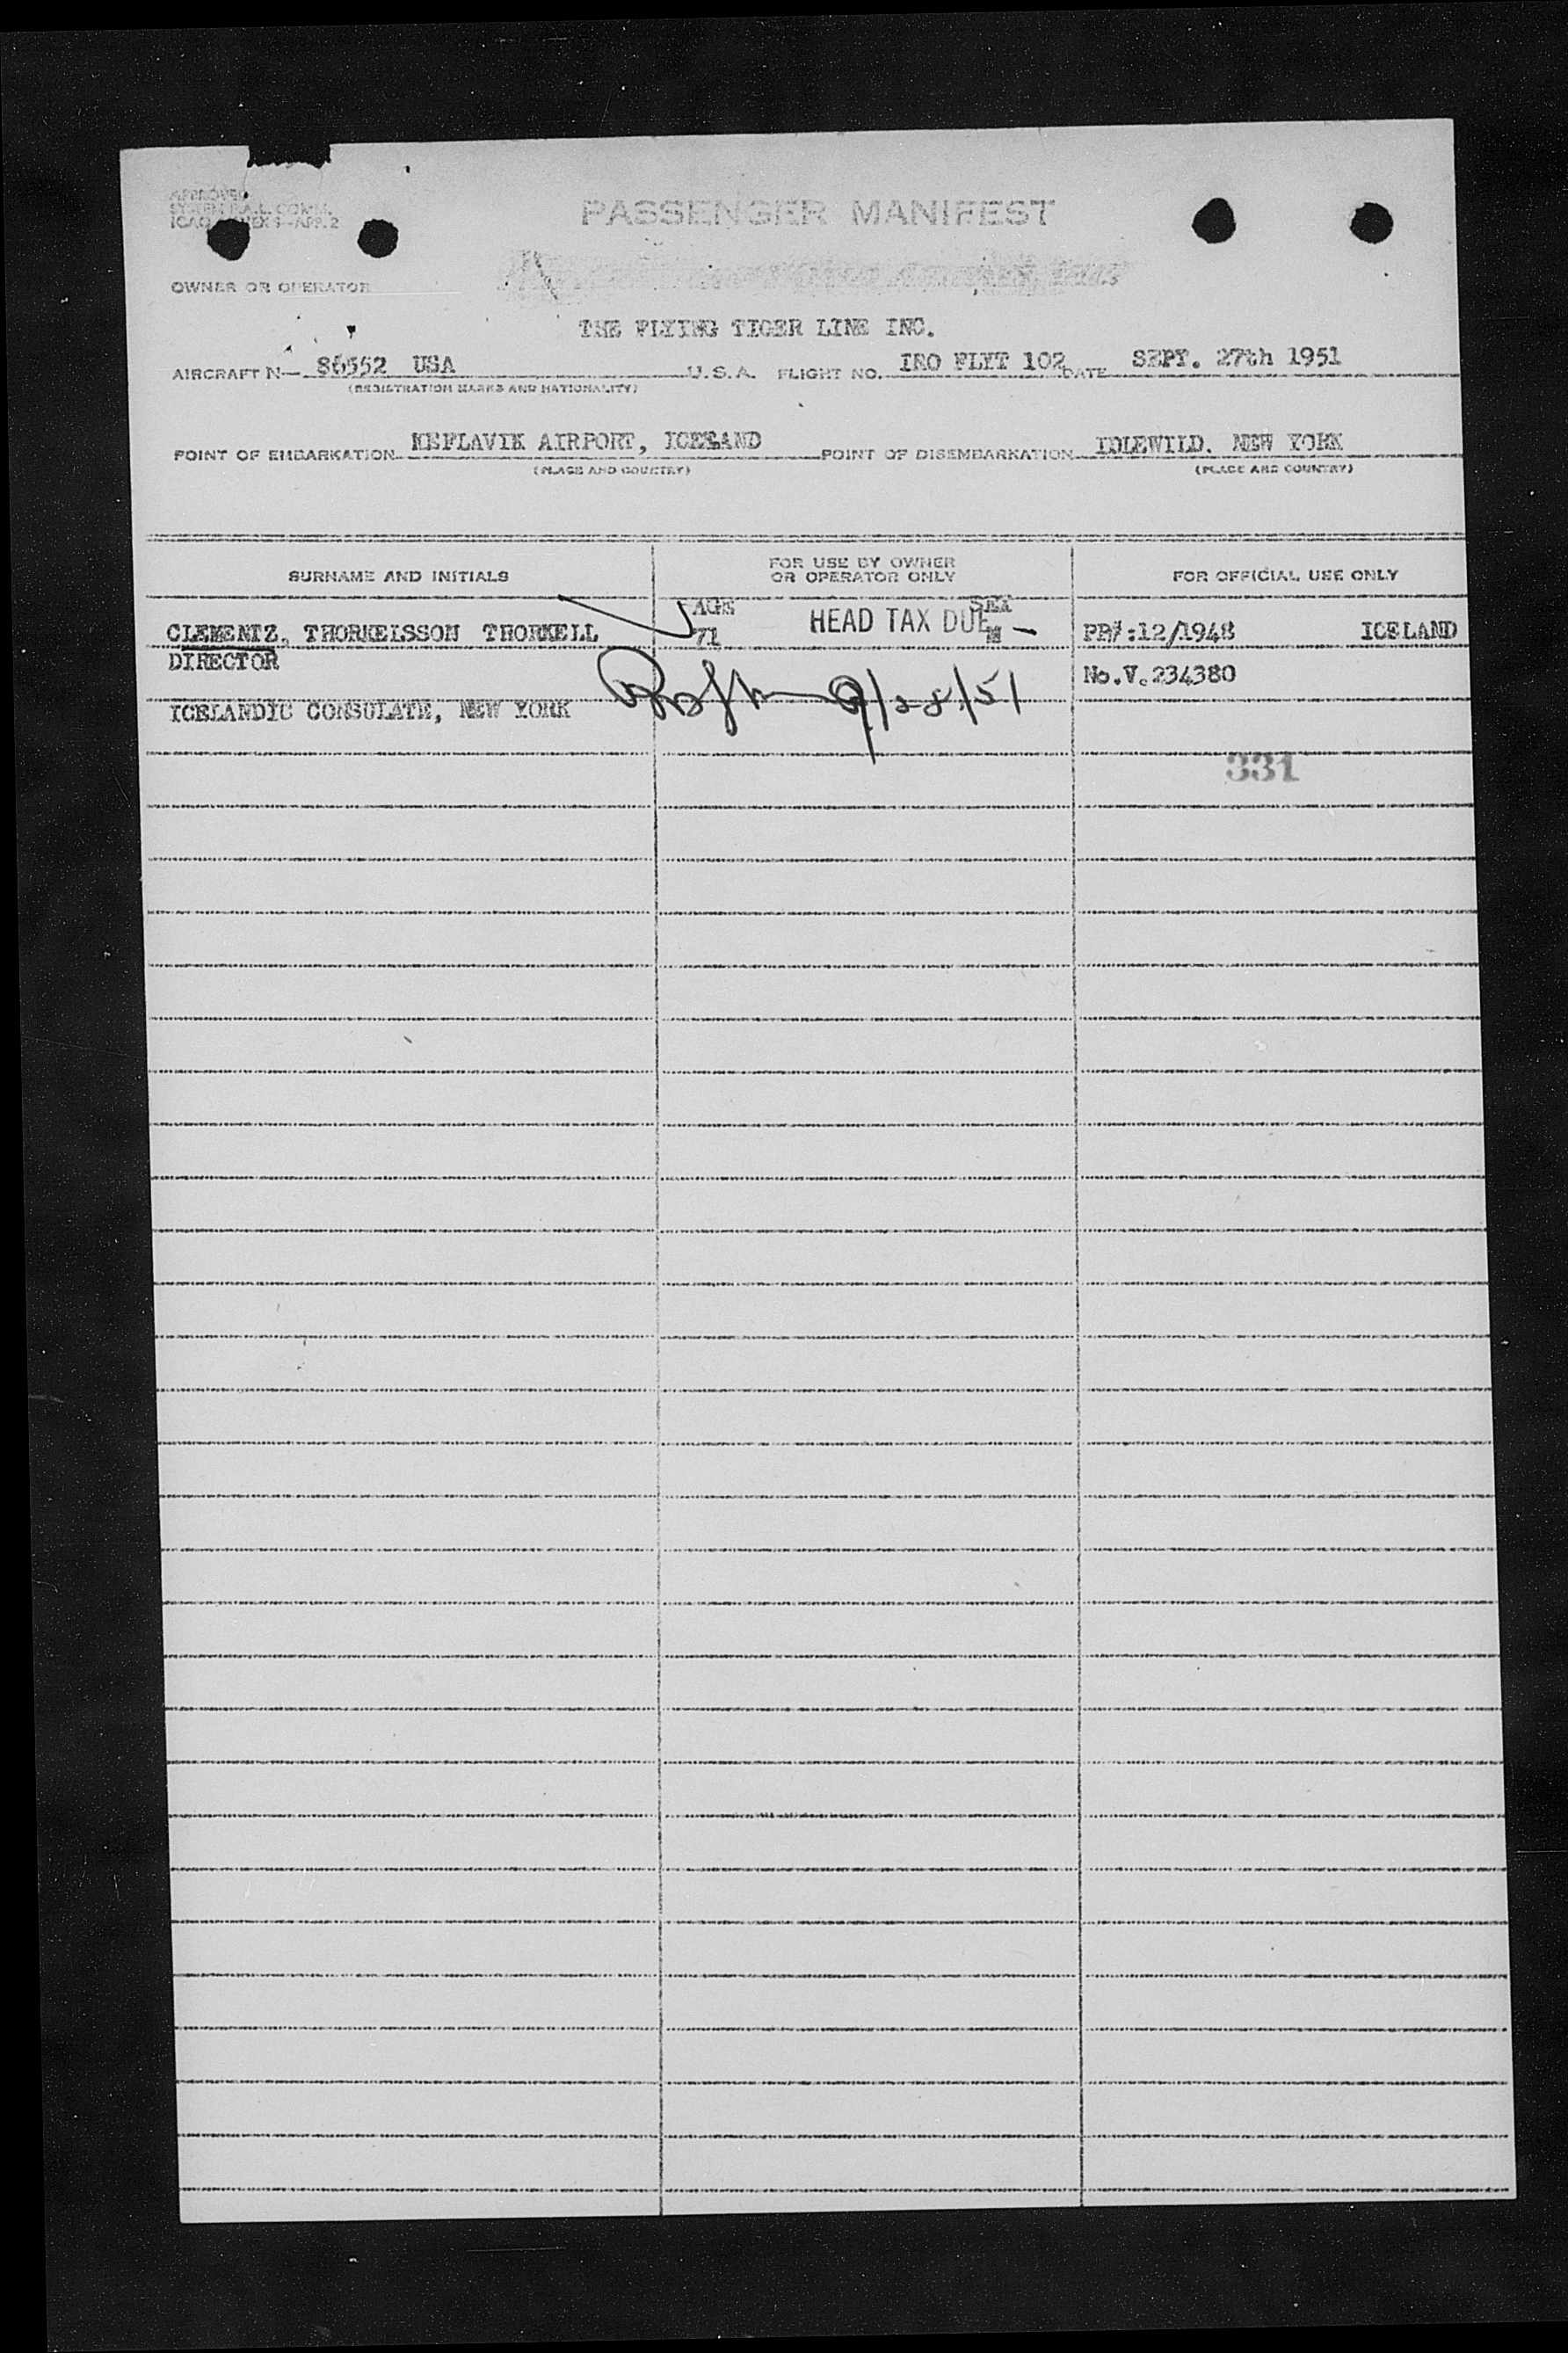 APPROVED
ICAO ANNEX 9-APP. 2
PASSENGER MANIFEST
OWNER OR OPERATOR
THE FLYING TIGER LINE INC.
AIRCRAFT N- 86552 USA U.S.A. FLIGHT NO. IRO FLYT 102 DATE SEPT. 27th 1951
(REGISTRATION MARKS AND NATIONALITY)
POINT OF EMBARKATION KEFLAVIK AIRPORT, ICELAND POINT OF DISEMBARKATION IDLEWILD. NEW YORK
(PLACE AND COUNTRY) (PLACE AND COUNTRY)
SURNAME AND INITIALS FOR USE BY OWNER OR OPERATOR ONLY FOR OFFICIAL USE ONLY
AGE HEAD TAX DUE SEX
CLEMENTZ, THORKELSSON THORKELL 71 M - PP#:12/1948 ICELAND
DIRECTOR No.V.234380
ICELANDIC CONSULATE, NEW YORK 9/28/51
331